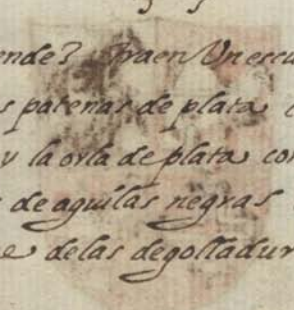 ende? Traen Un escu
s patenas de plata c
y la orla de plata con
s de aguilas negras
e delas degolladur